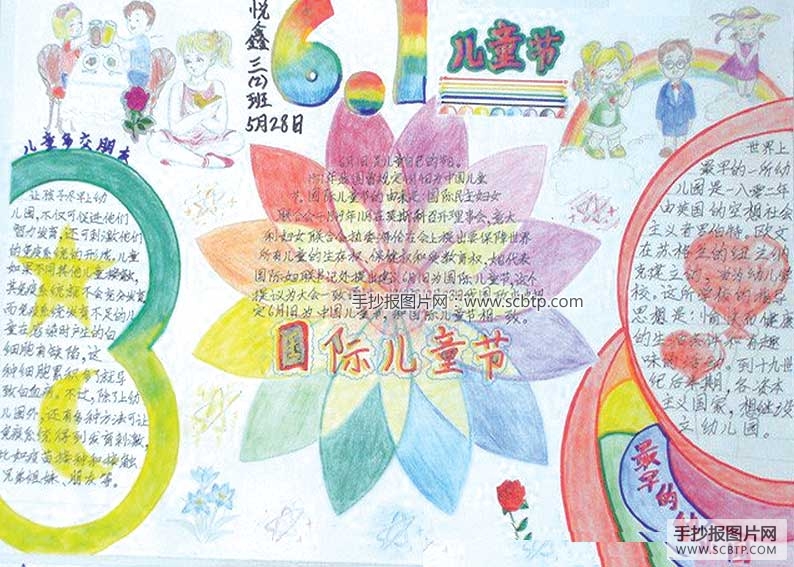 悦鑫
三(2)班
5月28日
6.1
儿童节
儿童多交朋友
让孩子尽早上幼
儿园,不仅可促进他们
智力发育,还可刺激他们
的免疫系统的形成。儿童
如果不同其他儿童接触,
其免疫系统就不会充分发育
而免疫系统发育不足的儿
童在感染时产生的白
细胞有缺陷,这
种细胞累积多了就导
致白血病。不过,除了上幼
儿园外,还有多种方法可让
免疫系统得到发育刺激,
比如疫苗接种和接触
兄弟姐妹、朋友等。
6月1日是儿童自己的节日。
国际儿童节的由来是:国际民主妇女
联合会于1949年11月在莫斯科召开理事会,意大
利妇女联合会
在会上提出要保障世界
所有儿童的生存权、保健权和受教育权,
6月1日为国际儿童节,这个
提议为大会一致
定6月1日为中国儿童节,和国际儿童节相一致。
手抄报图片网:www.scbtp.com
国际儿童节
世界上
最早的一所幼
儿园是一八零二年
由英国的空想社会
主义者罗伯特。欧文
在苏格兰的纽兰纳
克建立的,当为幼儿学
校。这所学校的指导
思想是:
健康
的生
和有趣
味的活动。到十九世
纪后半期,各资本
主义国家,相继设
立幼儿园。
最早的幼
手抄报图片网
WWW.SCBTP.COM